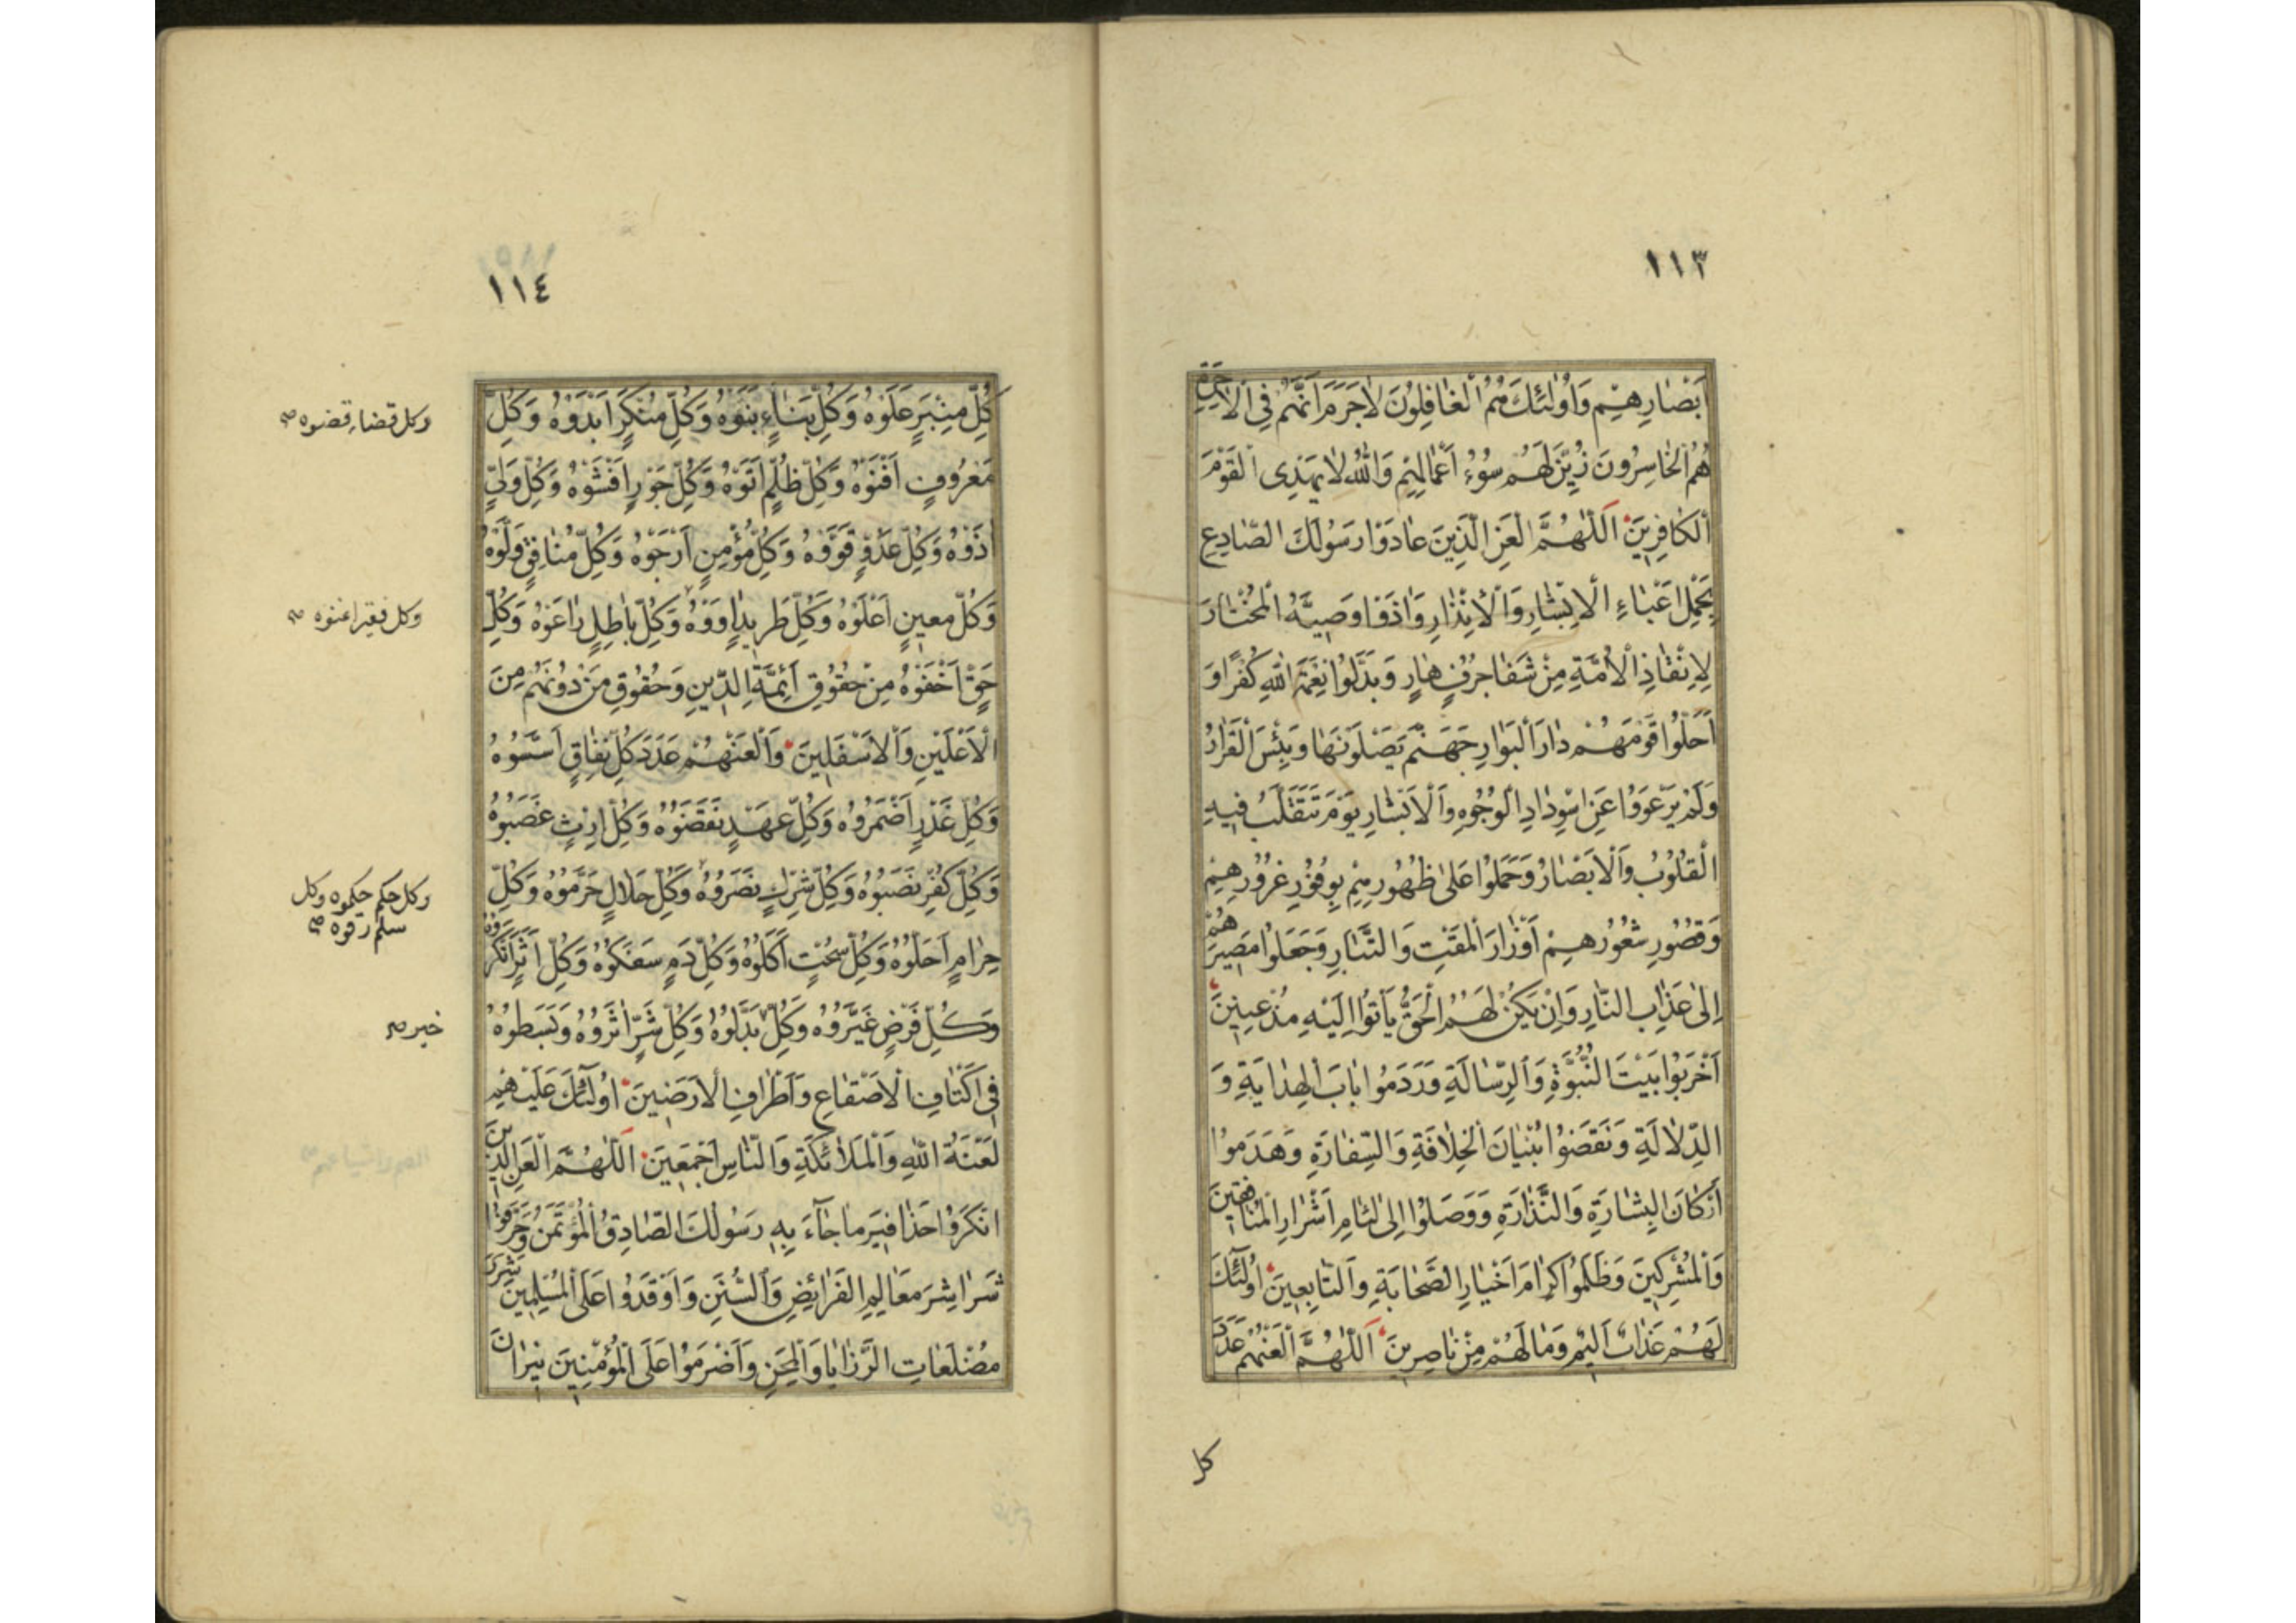 ١١٣
اَبْصارِهِمْ وَاُولٰئِكَ هُمُ الْغافِلُونَ لاجَرَمَ اَنَّهُمْ فِى الْاخِرَةِ
هُمُ الْخاسِرُونَ زُيِّنَ لَهُمْ سُوۤءُ اَعْمالِهِمْ وَاللهُ لا يَهْدِى الْقَوْمَ
الْكافِرينَ اَللّٰهُمَّ الْعَنِ الَّذِينَ عادَوْا رَسُولَكَ الصّادِعِ
بِحَمْلِ اَعْباءِ الْاِبْشارِ وَالْاِنْذارِ وَاذَوْا وَصِيَّهُ الْمُخْتارَ
لِاِنْقاذِ الْاُمَّةِ مِنْ شَفا جُرُفٍ هارٍ وَبَدَّلُوا نِعْمَةَ اللهِ كُفْرًا وَ
اَحَلُّوا قَوْمَهُمْ دارَ الْبَوارِ جَهَنَّمَ يَصْلَوْنَها وَبِئْسَ الْقَرارُ
وَلَمْ يَرْعَوُوا عَنِ اسْوِدادِ الْوُجُوهِ وَالْاَبْشارِ يَوْمَ تَتَقَلَّبُ فيهِ
الْقُلُوبُ وَالْاَبْصارُ وَحَمَلُوا عَلىٰ ظُهُورِهِمْ بِوُفُورِ غُرُورِهِمْ
وَقُصُورِ شُعُورِهِمْ اَوْزارَ الْمَقْتِ وَالتَّبارِ وَجَعَلُوا مَصيرَهُمْ
اِلىٰ عَذابِ النّارِ وَاِنْ يَكُنْ لَهُمُ الْحَقُّ يَأْتُوا اِلَيْهِ مُذْعِنينَ
اَخْرَبُوا بَيْتَ النُّبُوَّةِ وَالرِّسالَةِ وَرَدَمُوا بابَ الْهِدايَةِ وَ
الدِّلالَةِ وَنَقَضُوا بُنْيانَ الْخِلافَةِ وَالسِّفارَةِ وَهَدَمُوا
اَرْكانَ الْبِشارَةِ وَالنَّذارَةِ وَوَصَلُوا اِلىٰ لِئامِ اَشْرارِ الْمُنافِقينَ
وَالْمُشْرِكينَ وَظَلَمُوا كِرامَ اَخْيارِ الصَّحابَةِ وَالتّابِعينَ اُولٰئِكَ
لَهُمْ عَذابٌ اَليمٌ وَما لَهُمْ مِنْ ناصِرينَ اَللّٰهُمَّ الْعَنْهُمْ عَدَدَ
كل
١١٤
كُلِّ مِنْبَرٍ عَلَوْهُ وَكُلِّ بَناءٍ بَنَوْهُ وَكُلِّ مُنْكَرٍ اَبْدَوْهُ وَكُلِّ
وكل قضاء قضوه صح
مَعْرُوفٍ اَفْنَوْهُ وَكُلِّ ظُلْمٍ اَتَوْهُ وَكُلِّ جَوْرٍ اَفْشَوْهُ وَكُلِّ وَلِيٍّ
اذَوْهُ وَكُلِّ عَدُوٍّ قَوَّوْهُ وَكُلِّ مُؤْمِنٍ اَرْجَوْهُ وَكُلِّ مُنافِقٍ وَلَّوْهُ
وَكُلِّ مَعينٍ اَعْلَوْهُ وَكُلِّ طَريدٍ اوَوْهُ وَكُلِّ باطِلٍ راعَوْهُ وَكُلِّ
وكل فقير اغنوه صح
حَقٍّ اَخْفَوْهُ مِنْ حُقُوقِ اَئِمَّةِ الدّينِ وَحُقُوقِ مَنْ دُونَهُمْ مِنَ
الْاَعْلَيْنِ وَالْاَسْفَلِينَ وَالْعَنْهُمْ عَدَدَ كُلِّ نِفاقٍ اَسَّسُوهُ
وَكُلِّ غَدْرٍ اَضْمَرُوهُ وَكُلِّ عَهْدٍ نَقَضَوْهُ وَكُلِّ اِرْثٍ غَصَبُوهُ
وَكُلِّ كُفْرٍ نَصَبُوهُ وَكُلِّ شِرْكٍ نَصَرُوهُ وَكُلِّ حَلالٍ حَرَّمُوهُ وَكُلِّ
وكل حكم حكموه وكل
سلم صح
حِرامٍ اَحَلُّوهُ وَكُلِّ سُحْتٍ اَكَلُوهُ وَكُلِّ دَمٍ سَفَكُوهُ وَكُلِّ اَثَرٍ اَنْكَرُوهُ
وَكُلِّ فَرْضٍ غَيَّرُوهُ وَكُلِّ بَدَّلُوهُ وَكُلِّ شَرٍّ اثَرُوهُ وَبَسَطُوهُ
خبر صح
فِى اَكْنافِ الْاَصْقاعِ وَاَطْرافِ الْاَرَضينَ اُولٰئِكَ عَلَيْهِمْ
لَعْنَةُ اللهِ وَالْمَلائِكَةِ وَالنّاسِ اَجْمَعينَ اَللّٰهُمَّ الْعَنِ الَّذينَ
اَنْكَرُوا حَذافيرَ ما جاۤءَ بِهِ رَسُولُكَ الصّادِقُ الْمُؤْتَمَنُ وَحَرَّفُوا
شَراشِرَ مَعالِيمِ الْفَرائِضِ وَالسُّنَنِ وَاَوْقَدُوا عَلَى الْمُسْلِمينَ
مُضْلَعاتِ الرَّزايا وَالْمِحَنِ وَاَضْرَمُوا عَلَى الْمُؤْمِنينَ نيرانَ